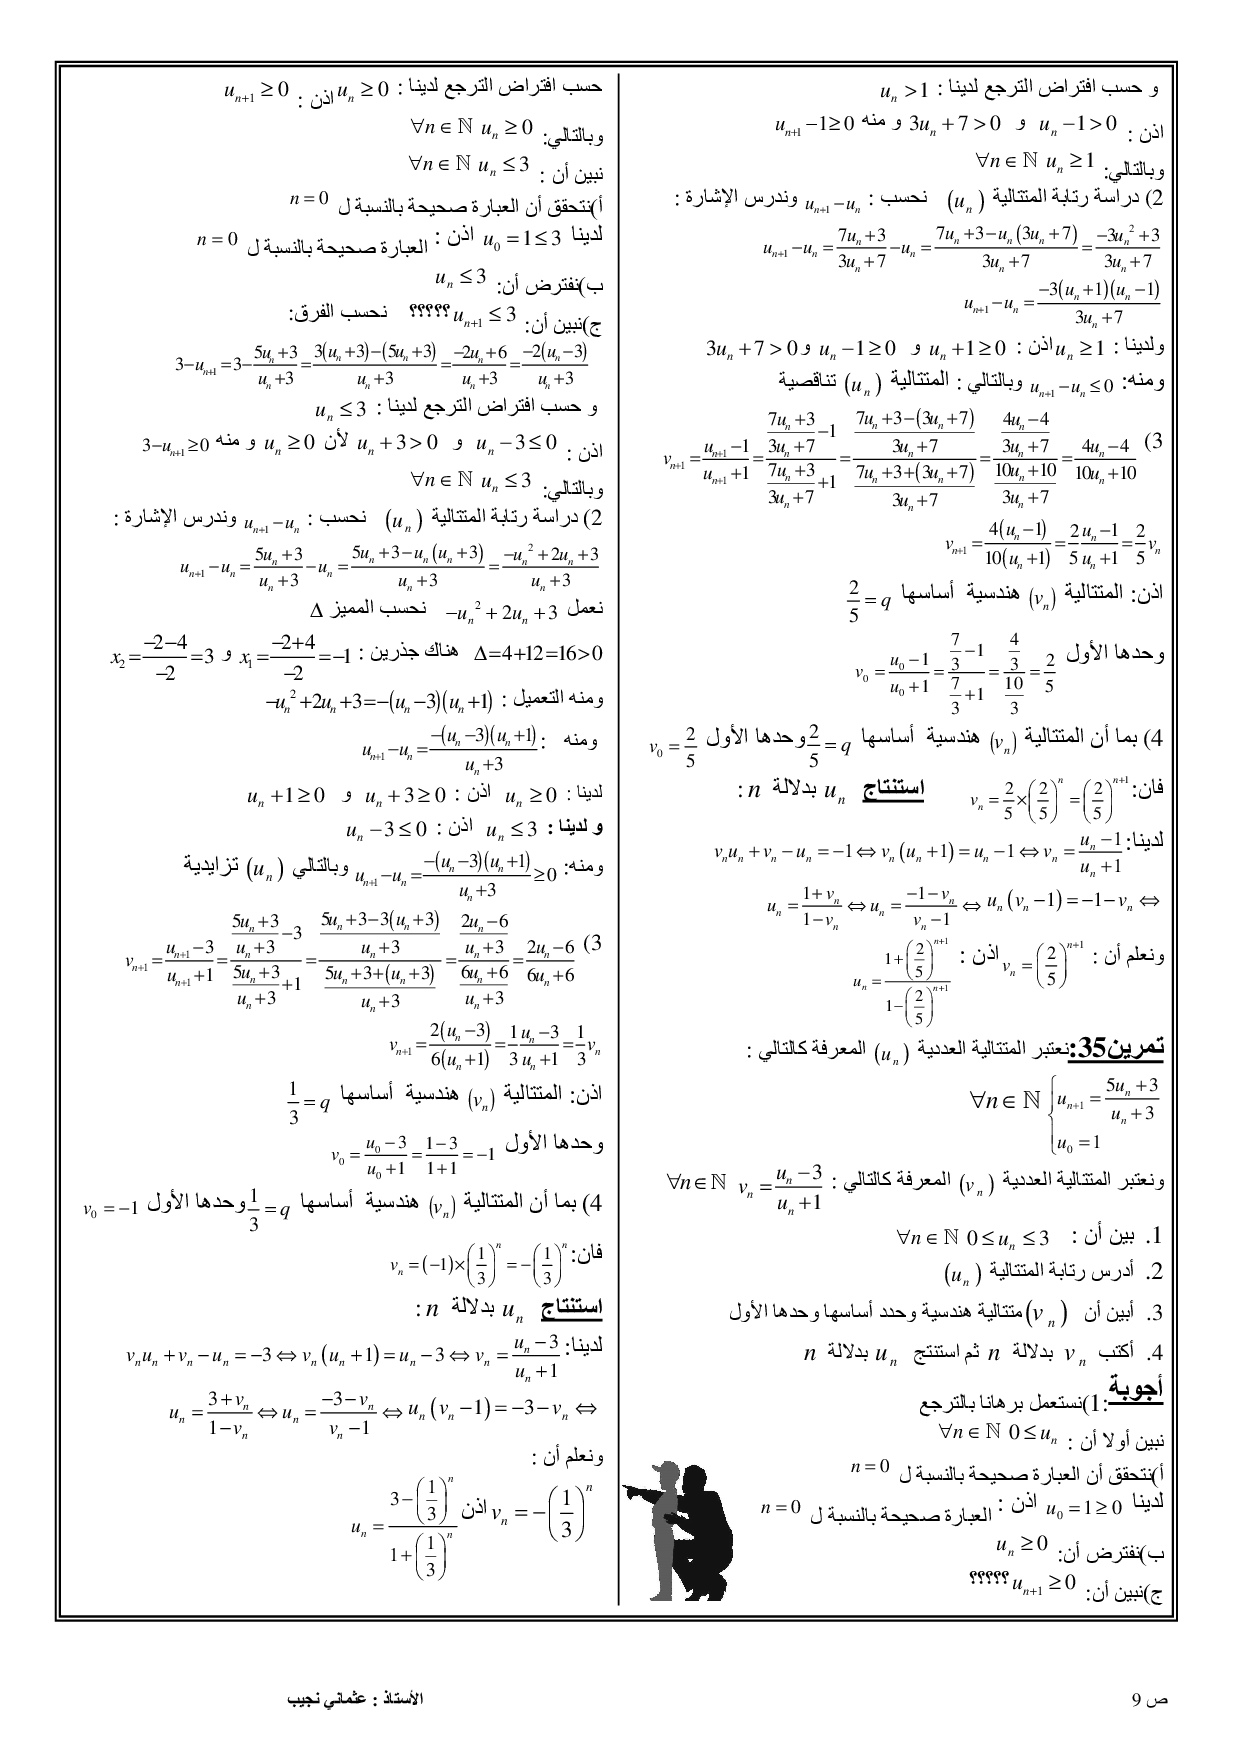 و حسب افتراض الترجع لدينا : uₙ >1
اذن : uₙ −1>0 و 3uₙ +7 >0 و منه uₙ₊₁ −1≥0
وبالتالي: ∀n∈ℕ uₙ ≥1
2) دراسة رتابة المتتالية (uₙ) نحسب : uₙ₊₁−uₙ وندرس الإشارة :
uₙ₊₁−uₙ = (7uₙ+3)/(3uₙ+7) −uₙ = (7uₙ+3−uₙ(3uₙ+7))/(3uₙ+7) = (−3uₙ²+3)/(3uₙ+7)
uₙ₊₁−uₙ = (−3(uₙ+1)(uₙ−1))/(3uₙ+7)
ولدينا : uₙ ≥1 اذن : uₙ +1≥0 و uₙ −1≥0 و 3uₙ +7>0
ومنه: uₙ₊₁−uₙ ≤0 وبالتالي : المتتالية (uₙ) تناقصية
3) vₙ₊₁ = (uₙ₊₁−1)/(uₙ₊₁+1) = ((7uₙ+3)/(3uₙ+7) −1)/((7uₙ+3)/(3uₙ+7) +1) = ((7uₙ+3−(3uₙ+7))/(3uₙ+7))/((7uₙ+3+(3uₙ+7))/(3uₙ+7)) = ((4uₙ−4)/(3uₙ+7))/((10uₙ+10)/(3uₙ+7)) = (4uₙ−4)/(10uₙ+10)
vₙ₊₁ = (4(uₙ−1))/(10(uₙ+1)) = 2/5 (uₙ−1)/(uₙ+1) = 2/5 vₙ
اذن: المتتالية (vₙ) هندسية أساسها 2/5 = q
وحدها الأول v₀ = (u₀−1)/(u₀+1) = (7/3 −1)/(7/3 +1) = (4/3)/(10/3) = 2/5
4) بما أن المتتالية (vₙ) هندسية أساسها 2/5 = q وحدها الأول v₀ = 2/5
فان: vₙ = 2/5 ×(2/5)ⁿ = (2/5)ⁿ⁺¹ استنتاج uₙ بدلالة n :
لدينا: vₙuₙ + vₙ − uₙ = −1 ⇔ vₙ(uₙ +1) = uₙ −1 ⇔ vₙ = (uₙ−1)/(uₙ+1)
uₙ = (1+vₙ)/(1−vₙ) ⇔ uₙ = (−1−vₙ)/(vₙ−1) ⇔ uₙ(vₙ −1) = −1−vₙ ⇔
ونعلم أن : vₙ = (2/5)ⁿ⁺¹ اذن : uₙ = (1+(2/5)ⁿ⁺¹)/(1−(2/5)ⁿ⁺¹)
تمرين35: نعتبر المتتالية العددية (uₙ) المعرفة كالتالي :
∀n∈ℕ { uₙ₊₁ = (5uₙ+3)/(uₙ+3)
u₀ =1
ونعتبر المتتالية العددية (vₙ) المعرفة كالتالي : vₙ = (uₙ−3)/(uₙ+1) ∀n∈ℕ
1. بين أن : ∀n∈ℕ 0≤uₙ ≤3
2. أدرس رتابة المتتالية (uₙ)
3. أبين أن (vₙ) متتالية هندسية وحدد أساسها وحدها الأول
4. أكتب vₙ بدلالة n ثم استنتج uₙ بدلالة n
أجوبة :1)نستعمل برهانا بالترجع
نبين أولا أن : ∀n∈ℕ 0≤uₙ
أ)نتحقق أن العبارة صحيحة بالنسبة ل n =0
لدينا u₀ =1≥0 اذن : العبارة صحيحة بالنسبة ل n =0
ب)نفترض أن: uₙ ≥0
ج)نبين أن: uₙ₊₁ ≥0 ؟؟؟؟؟
حسب افتراض الترجع لدينا : uₙ ≥0 اذن : uₙ₊₁ ≥0
وبالتالي: ∀n∈ℕ uₙ ≥0
نبين أن : ∀n∈ℕ uₙ ≤3
أ)نتحقق أن العبارة صحيحة بالنسبة ل n =0
لدينا u₀ =1≤3 اذن : العبارة صحيحة بالنسبة ل n =0
ب)نفترض أن: uₙ ≤3
ج)نبين أن: uₙ₊₁ ≤3 ؟؟؟؟؟ نحسب الفرق:
3−uₙ₊₁ =3− (5uₙ+3)/(uₙ+3) = (3(uₙ+3)−(5uₙ+3))/(uₙ+3) = (−2uₙ+6)/(uₙ+3) = (−2(uₙ−3))/(uₙ+3)
و حسب افتراض الترجع لدينا : uₙ ≤3
اذن : uₙ −3≤0 و uₙ +3>0 لأن uₙ ≥0 و منه 3−uₙ₊₁ ≥0
وبالتالي: ∀n∈ℕ uₙ ≤3
2) دراسة رتابة المتتالية (uₙ) نحسب : uₙ₊₁−uₙ وندرس الإشارة :
uₙ₊₁−uₙ = (5uₙ+3)/(uₙ+3) −uₙ = (5uₙ+3−uₙ(uₙ+3))/(uₙ+3) = (−uₙ²+2uₙ+3)/(uₙ+3)
نعمل −uₙ²+2uₙ+3 نحسب المميز Δ
Δ=4+12=16>0 هناك جذرين : x₁ = (−2+4)/−2 = −1 و x₂ = (−2−4)/−2 = 3
ومنه التعميل : −uₙ²+2uₙ+3=−(uₙ−3)(uₙ+1)
ومنه : uₙ₊₁−uₙ = (−(uₙ−3)(uₙ+1))/(uₙ+3)
لدينا : uₙ ≥0 اذن : uₙ +3≥0 و uₙ +1≥0
و لدينا : uₙ ≤3 اذن : uₙ −3≤0
ومنه: uₙ₊₁−uₙ = (−(uₙ−3)(uₙ+1))/(uₙ+3) ≥0 وبالتالي (uₙ) تزايدية
3) vₙ₊₁ = (uₙ₊₁−3)/(uₙ₊₁+1) = ((5uₙ+3)/(uₙ+3) −3)/((5uₙ+3)/(uₙ+3) +1) = ((5uₙ+3−3(uₙ+3))/(uₙ+3))/((5uₙ+3+(uₙ+3))/(uₙ+3)) = ((2uₙ−6)/(uₙ+3))/((6uₙ+6)/(uₙ+3)) = (2uₙ−6)/(6uₙ+6)
vₙ₊₁ = (2(uₙ−3))/(6(uₙ+1)) = 1/3 (uₙ−3)/(uₙ+1) = 1/3 vₙ
اذن: المتتالية (vₙ) هندسية أساسها 1/3 = q
وحدها الأول v₀ = (u₀−3)/(u₀+1) = (1−3)/(1+1) = −1
4) بما أن المتتالية (vₙ) هندسية أساسها 1/3 = q وحدها الأول v₀ = −1
فان: vₙ = (−1)×(1/3)ⁿ = −(1/3)ⁿ
استنتاج uₙ بدلالة n :
لدينا: vₙuₙ + vₙ − uₙ = −3 ⇔ vₙ(uₙ +1) = uₙ −3 ⇔ vₙ = (uₙ−3)/(uₙ+1)
uₙ = (3+vₙ)/(1−vₙ) ⇔ uₙ = (−3−vₙ)/(vₙ−1) ⇔ uₙ(vₙ −1) = −3−vₙ ⇔
ونعلم أن :
vₙ = −(1/3)ⁿ اذن uₙ = (3−(1/3)ⁿ)/(1+(1/3)ⁿ)
ص 9 الأستاذ : عثماني نجيب